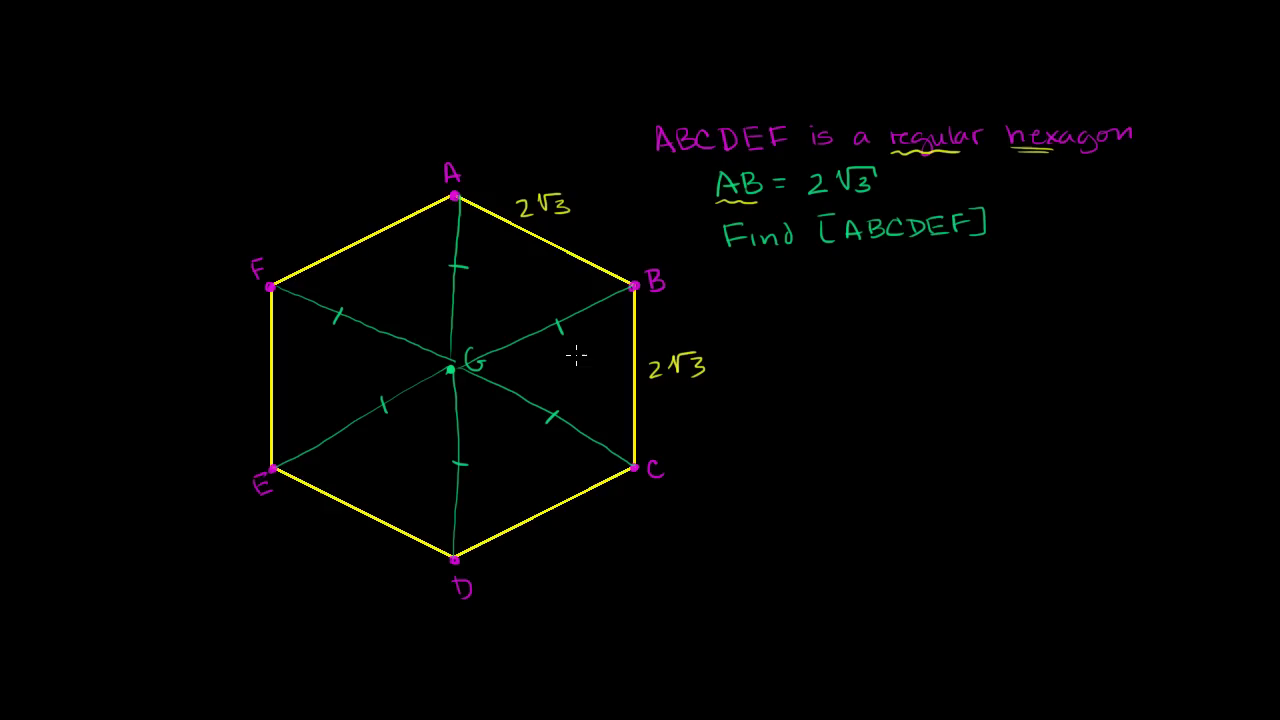 ABCDEF is a regular hexagon
AB = 2√3
Find [ABCDEF]
A
2√3
F
B
G
2√3
E
C
D